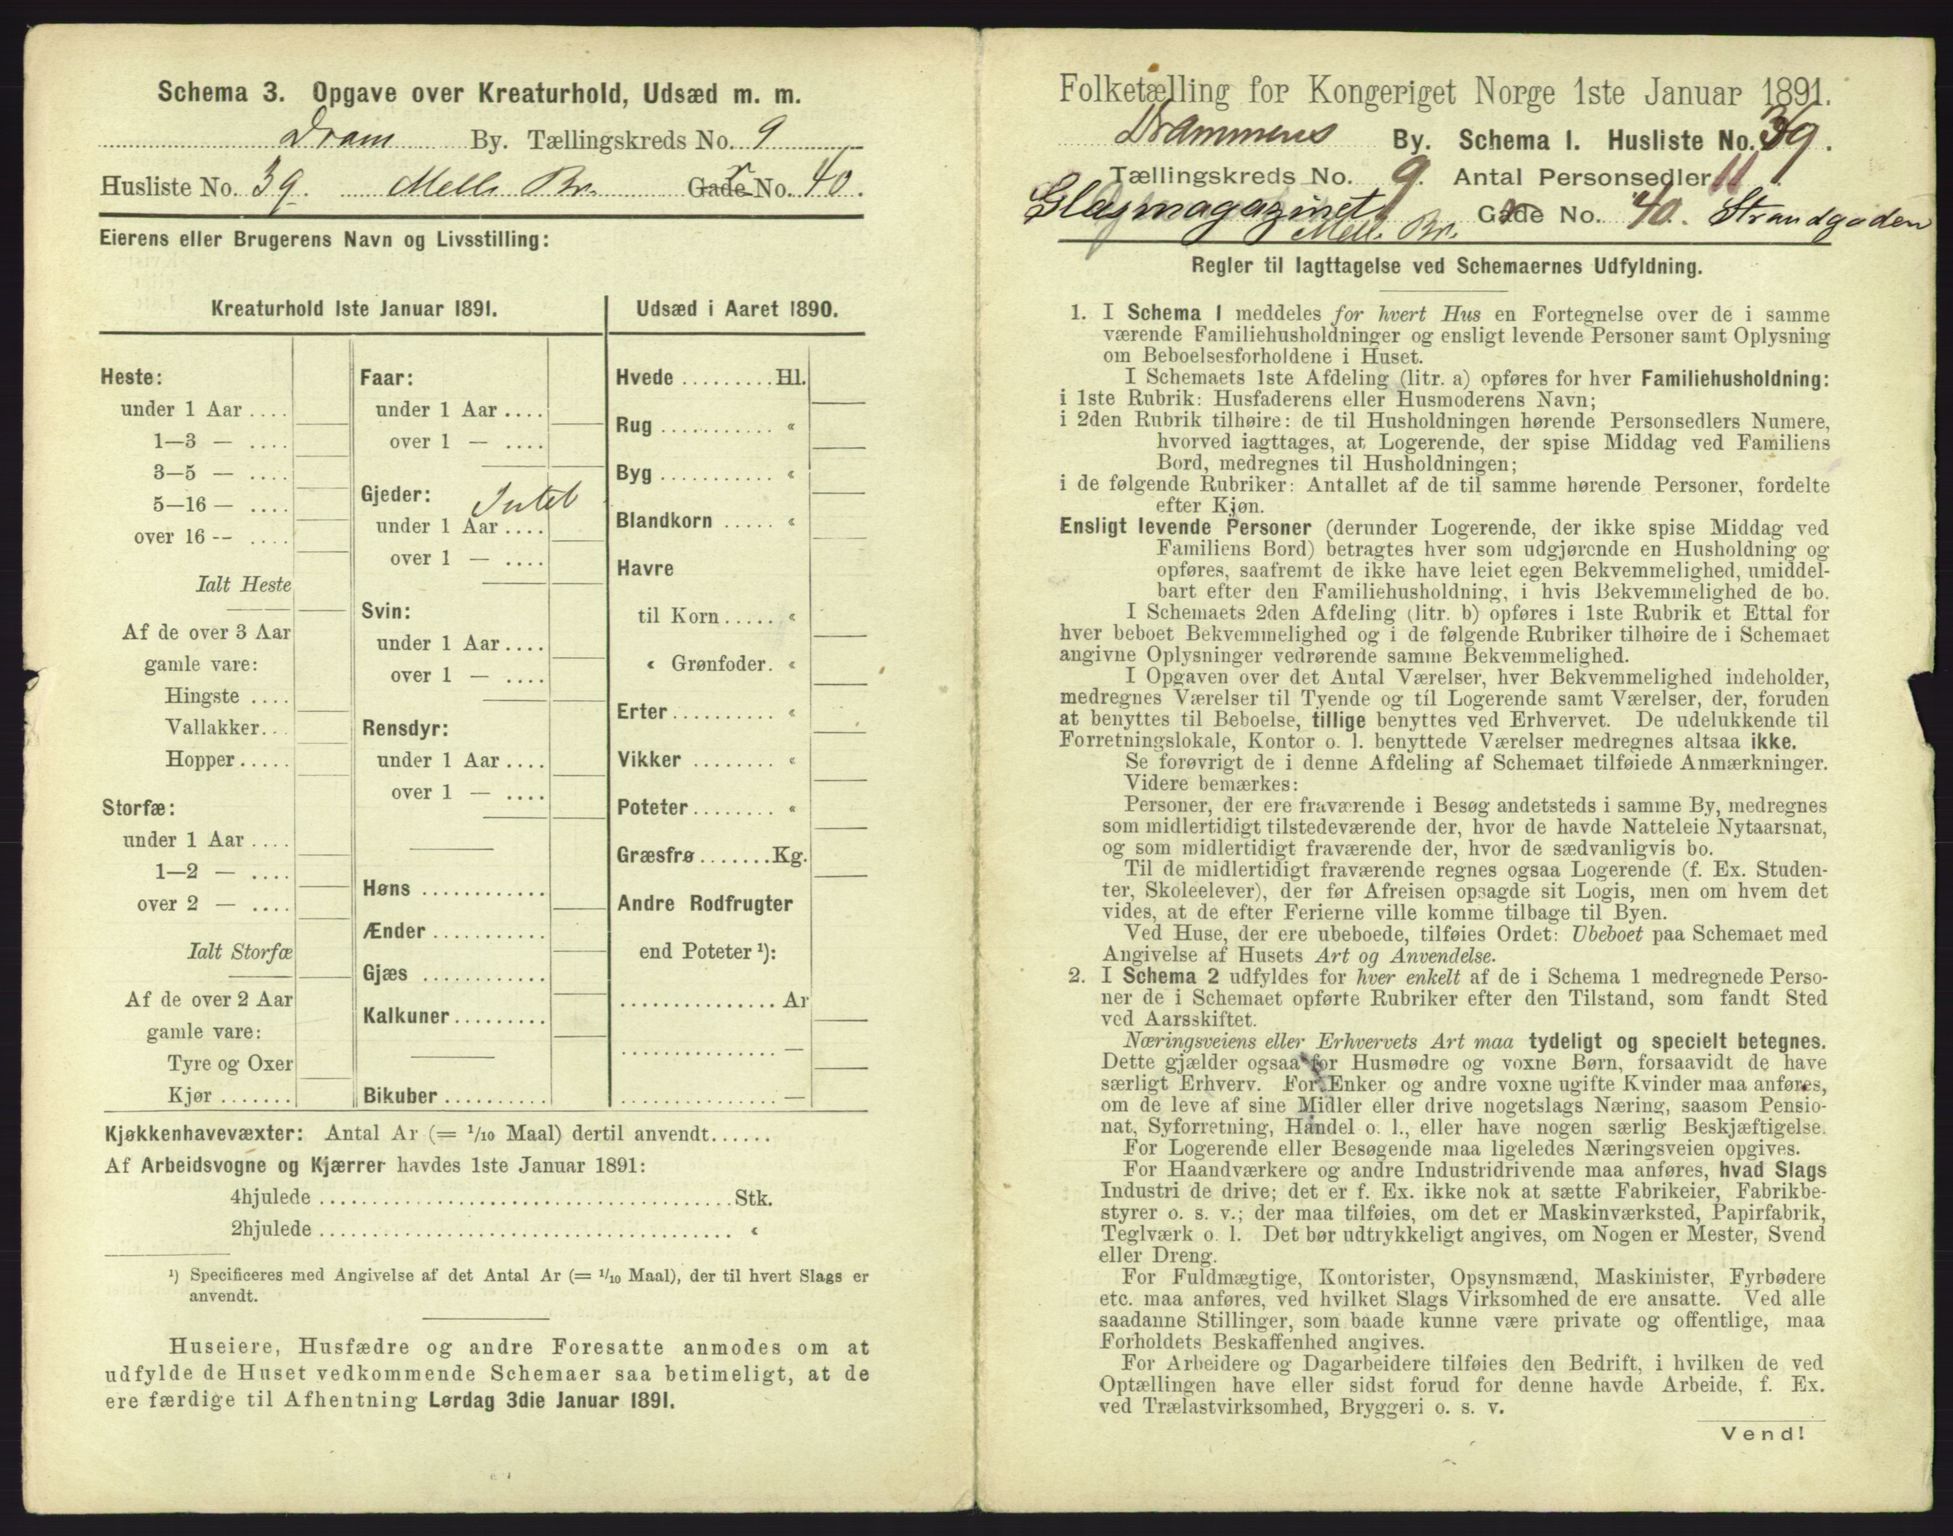 Schema 3. Opgave over Kreaturhold, Udsæd m. m.
Dram By. Tællingskreds No. 9
Husliste No. 39. Mell. Br. Gade No. 40.
Eierens eller Brugerens Navn og Livsstilling:
Kreaturhold 1ste Januar 1891.
Heste:
under 1 Aar ....
1—3 — ....
3—5 — ....
5—16 — ....
over 16 -- ....
Ialt Heste
Af de over 3 Aar
gamle vare:
Hingste ....
Vallakker...
Hopper.....
Storfæ:
under 1 Aar ....
1—2 — ....
over 2 — ....
Ialt Storfæ
Af de over 2 Aar
gamle vare:
Tyre og Oxer
Kjør .......
Faar:
under 1 Aar ....
over 1 — ....
Gjeder: Intet
under 1 Aar ....
over 1 — ....
Svin:
under 1 Aar ....
over 1 — ....
Rensdyr:
under 1 Aar ....
over 1 — ....
Høns ............
Ænder ...........
Gjæs ............
Kalkuner.........
Bikuber ..........
Udsæd i Aaret 1890.
Hvede .........Hl.
Rug ........... «
Byg ........... «
Blandkorn ..... «
Havre
til Korn ..... «
« Grønfoder. «
Erter.......... «
Vikker ........ «
Poteter........ «
Græsfrø .......Kg.
Andre Rodfrugter
end Poteter ¹):
............... Ar
............... —
............... —
Kjøkkenhavevæxter: Antal Ar (= 1/10 Maal) dertil anvendt......
Af Arbeidsvogne og Kjærrer havdes 1ste Januar 1891:
4hjulede ........................................Stk.
2hjulede ........................................ «
¹) Specificeres med Angivelse af det Antal Ar (= 1/10 Maal), der til hvert Slags er
anvendt.
Huseiere, Husfædre og andre Foresatte anmodes om at
udfylde de Huset vedkommende Schemaer saa betimeligt, at de
ere færdige til Afhentning Lørdag 3die Januar 1891.
Folketælling for Kongeriget Norge 1ste Januar 1891.
Drammens By. Schema I. Husliste No. 39.
Tællingskreds No. 9. Antal Personsedler 11.
Glasmagazinet Mell. Br. Gade No. 40. Strandgaden
Regler til Iagttagelse ved Schemaernes Udfyldning.
1. I Schema 1 meddeles for hvert Hus en Fortegnelse over de i samme
værende Familiehusholdninger og ensligt levende Personer samt Oplysning
om Beboelsesforholdene i Huset.
I Schemaets 1ste Afdeling (litr. a) opføres for hver Familiehusholdning:
i 1ste Rubrik: Husfaderens eller Husmoderens Navn;
i 2den Rubrik tilhøire: de til Husholdningen hørende Personsedlers Numere,
hvorved iagttages, at Logerende, der spise Middag ved Familiens
Bord, medregnes til Husholdningen;
i de følgende Rubriker: Antallet af de til samme hørende Personer, fordelte
efter Kjøn.
Ensligt levende Personer (derunder Logerende, der ikke spise Middag ved
Familiens Bord) betragtes hver som udgjørende en Husholdning og
opføres, saafremt de ikke have leiet egen Bekvemmelighed, umiddel-
bart efter den Familiehusholdning, i hvis Bekvemmelighed de bo.
I Schemaets 2den Afdeling (litr. b) opføres i 1ste Rubrik et Ettal for
hver beboet Bekvemmelighed og i de følgende Rubriker tilhøire de i Schemaet
angivne Oplysninger vedrørende samme Bekvemmelighed.
I Opgaven over det Antal Værelser, hver Bekvemmelighed indeholder,
medregnes Værelser til Tyende og til Logerende samt Værelser, der, foruden
at benyttes til Beboelse, tillige benyttes ved Erhvervet. De udelukkende til
Forretningslokale, Kontor o. l. benyttede Værelser medregnes altsaa ikke.
Se forøvrigt de i denne Afdeling af Schemaet tilføiede Anmærkninger.
Videre bemærkes:
Personer, der ere fraværende i Besøg andetsteds i samme By, medregnes
som midlertidigt tilstedeværende der, hvor de havde Natteleie Nytaarsnat,
og som midlertidigt fraværende der, hvor de sædvanligvis bo.
Til de midlertidigt fraværende regnes ogsaa Logerende (f. Ex. Studen-
ter, Skoleelever), der før Afreisen opsagde sit Logis, men om hvem det
vides, at de efter Ferierne ville komme tilbage til Byen.
Ved Huse, der ere ubeboede, tilføies Ordet: Ubeboet paa Schemaet med
Angivelse af Husets Art og Anvendelse.
2. I Schema 2 udfyldes for hver enkelt af de i Schema 1 medregnede Perso-
ner de i Schemaet opførte Rubriker efter den Tilstand, som fandt Sted
ved Aarsskiftet.
Næringsveiens eller Erhvervets Art maa tydeligt og specielt betegnes.
Dette gjælder ogsaa for Husmødre og voxne Børn, forsaavidt de have
særligt Erhverv. For Enker og andre voxne ugifte Kvinder maa anføres,
om de leve af sine Midler eller drive nogetslags Næring, saasom Pensio-
nat, Syforretning, Handel o. l., eller have nogen særlig Beskjæftigelse.
For Logerende eller Besøgende maa ligeledes Næringsveien opgives.
For Haandværkere og andre Industridrivende maa anføres, hvad Slags
Industri de drive; det er f. Ex. ikke nok at sætte Fabrikeier, Fabrikbe-
styrer o. s. v.; der maa tilføies, om det er Maskinværksted, Papirfabrik,
Teglværk o. l. Det bør udtrykkeligt angives, om Nogen er Mester, Svend
eller Dreng.
For Fuldmægtige, Kontorister, Opsynsmænd, Maskinister, Fyrbødere
etc. maa anføres, ved hvilket Slags Virksomhed de ere ansatte. Ved alle
saadanne Stillinger, som baade kunne være private og offentlige, maa
Forholdets Beskaffenhed angives.
For Arbeidere og Dagarbeidere tilføies den Bedrift, i hvilken de ved
Optællingen have eller sidst forud for denne havde Arbeide, f. Ex.
ved Trælastvirksomhed, Bryggeri o. s. v.
Vend!